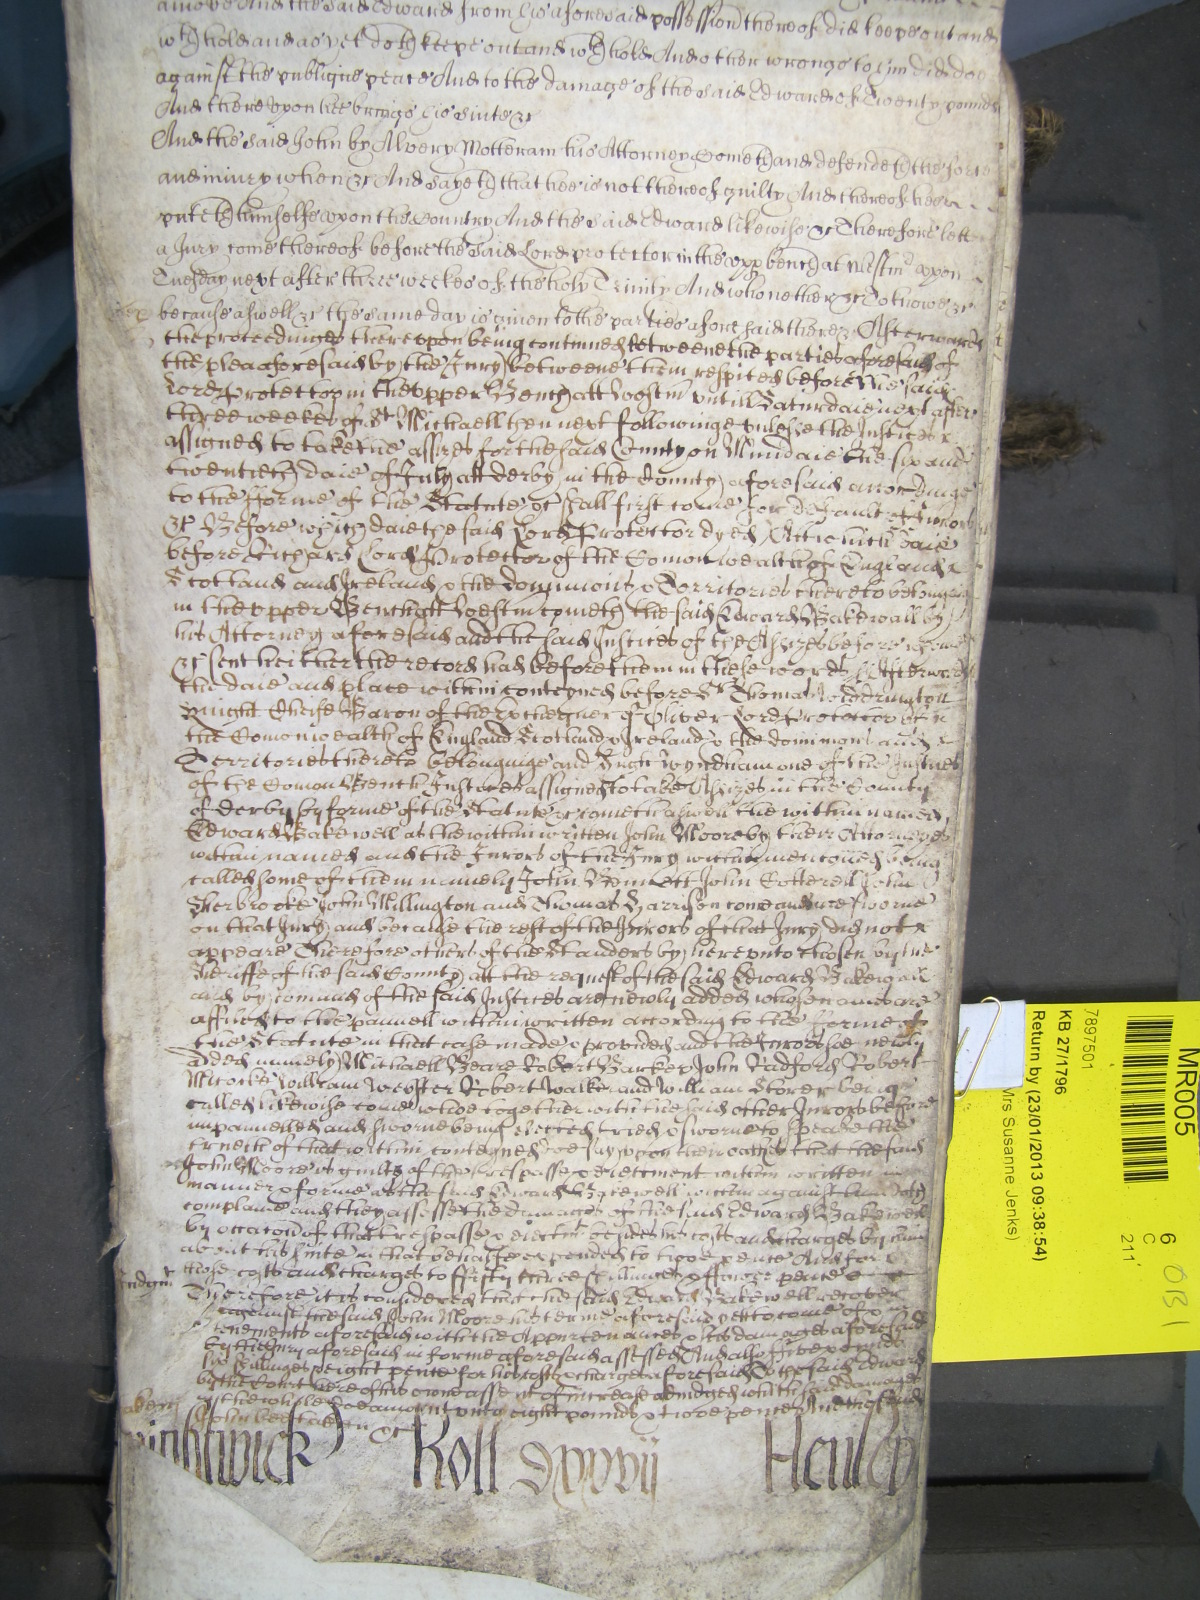 amove And the said Edward from his aforesaid possession thereof did keepe out and
wthhold and as yet doth keepe out and wthhold And other wrongs to him did doe
against the publique peace And to the damage of the said Edward of Twenty pounds
And thereupon hee brings his suite &c
And the said John by Alvery Motteram his Attorney Cometh and defendeth the force
and iniury when &c And sayeth that hee is not thereof guilty And thereof hee
putteth himselfe upon the Country And the said Edward likewise &c Therefore lett
a Jury come thereof before the said Lord protector in the upp bench at Westm upon
Tuesday next after three weekes of the holy Trinity And who neither &c To knowe &c
because aswell &c the same day is given to the parties aforesaid there &c Afterwards
the proceedings thereupon being continued betweene the parties aforesaid of
the plea aforesaid by the Jury betweene them respited before the said
Lord Protector in the upper Bench att Westm untill Saturdaie next after
three weekes of St Michaell then next followinge unlesse the Justices
assigned to take the assizes for the said County on Mundaie the six and
twentieth daie of July att Derby in the County aforesaid accordinge
to the fforme of the Statute &c shall first come for default of Jurors
&c Before which daie the said Lord Protector dyed Att which daie
before Richard Lord Protector of the Comonwealth of England
Scotland and Ireland & the dominions & Territories thereto belonging
in the upper Bench att Westm cometh the said Edward Bakewell by
his Attorney aforesaid and the said Justices of the Assizes before whome
&c sent hither the record had before them in these words Afterwards
the daie and place within conteyned before Sr Thomas Widdrington
Knight Cheife Baron of the Exchequer of Oliver Lord Protector of
the Comonwealth of England Scotland & Ireland & the dominions and
Territories thereto belonginge and Hugh Wyndham one of the Justices
of the Comon Bench Justices assigned to take Assizes in the County
of Derby by forme of the Statute &c cometh aswell the within named
Edward Bakewell as the within written John Moore by their Attorneyes
within named and the Jurors of the Jury within mentioned being
called some of them namely John Bennett John Cotterell John
Sherbrooke John Millington and Thomas Harrison come and are sworne
on that Jury and because the rest of the Jurors of that Jury did not
appeare Therefore others of the Standers by hereunto chosen by the
Sheriffe of the said County att the request of the said Edward Bakewell
and by comand of the said Justices are newly added whose names are
affiled to the pannell within written according to the fforme of
the Statute in that case made & provided and the Jurors soe newly
added namely Michaell Beare Robert Barker John Radford Robert
William Webster Robert Walker and William Storer being
called likewise come whoe together with the said other Jurors before
impannelled and sworne being elected tried & sworne to speake the
trueth of that within conteyned doe say upon their oathes that the said
John Moore is guilty of the trespasse & eiectment within written in
manner & forme as the said Edward Bakewell within against him doth
complaine and they assesse the damages of the said Edward Bakewell
by occacon of that trespasse & eiectmt besides his costs and charges by him
about his suite in that behalfe expended to twoe pence And for
those costs and charges to ffifty three shillinges & ffower pence
Judgmt
Therefore it is considered that the said Edward Bakewell recover
against the said John Moore his terme aforesaid yett to come of & in
tenements aforesaid with the Appurtenances & his damages aforesaid
by the Jury aforesaid in forme aforesaid assessed And also five pounds
six shillinges & eight pence for his costs & charges aforesaid to the said Edward
by the Court here of his owne assent of increase adiudged which said damages
in the whole doe amount unto eight pounds & twoe pence And the said
John bee taken &c
Roll
Henley
MR005
7897501
KB 27/1796
Return by (23/01/2013 09:38:54)
Mrs Susanne Jenks)
6
C
211